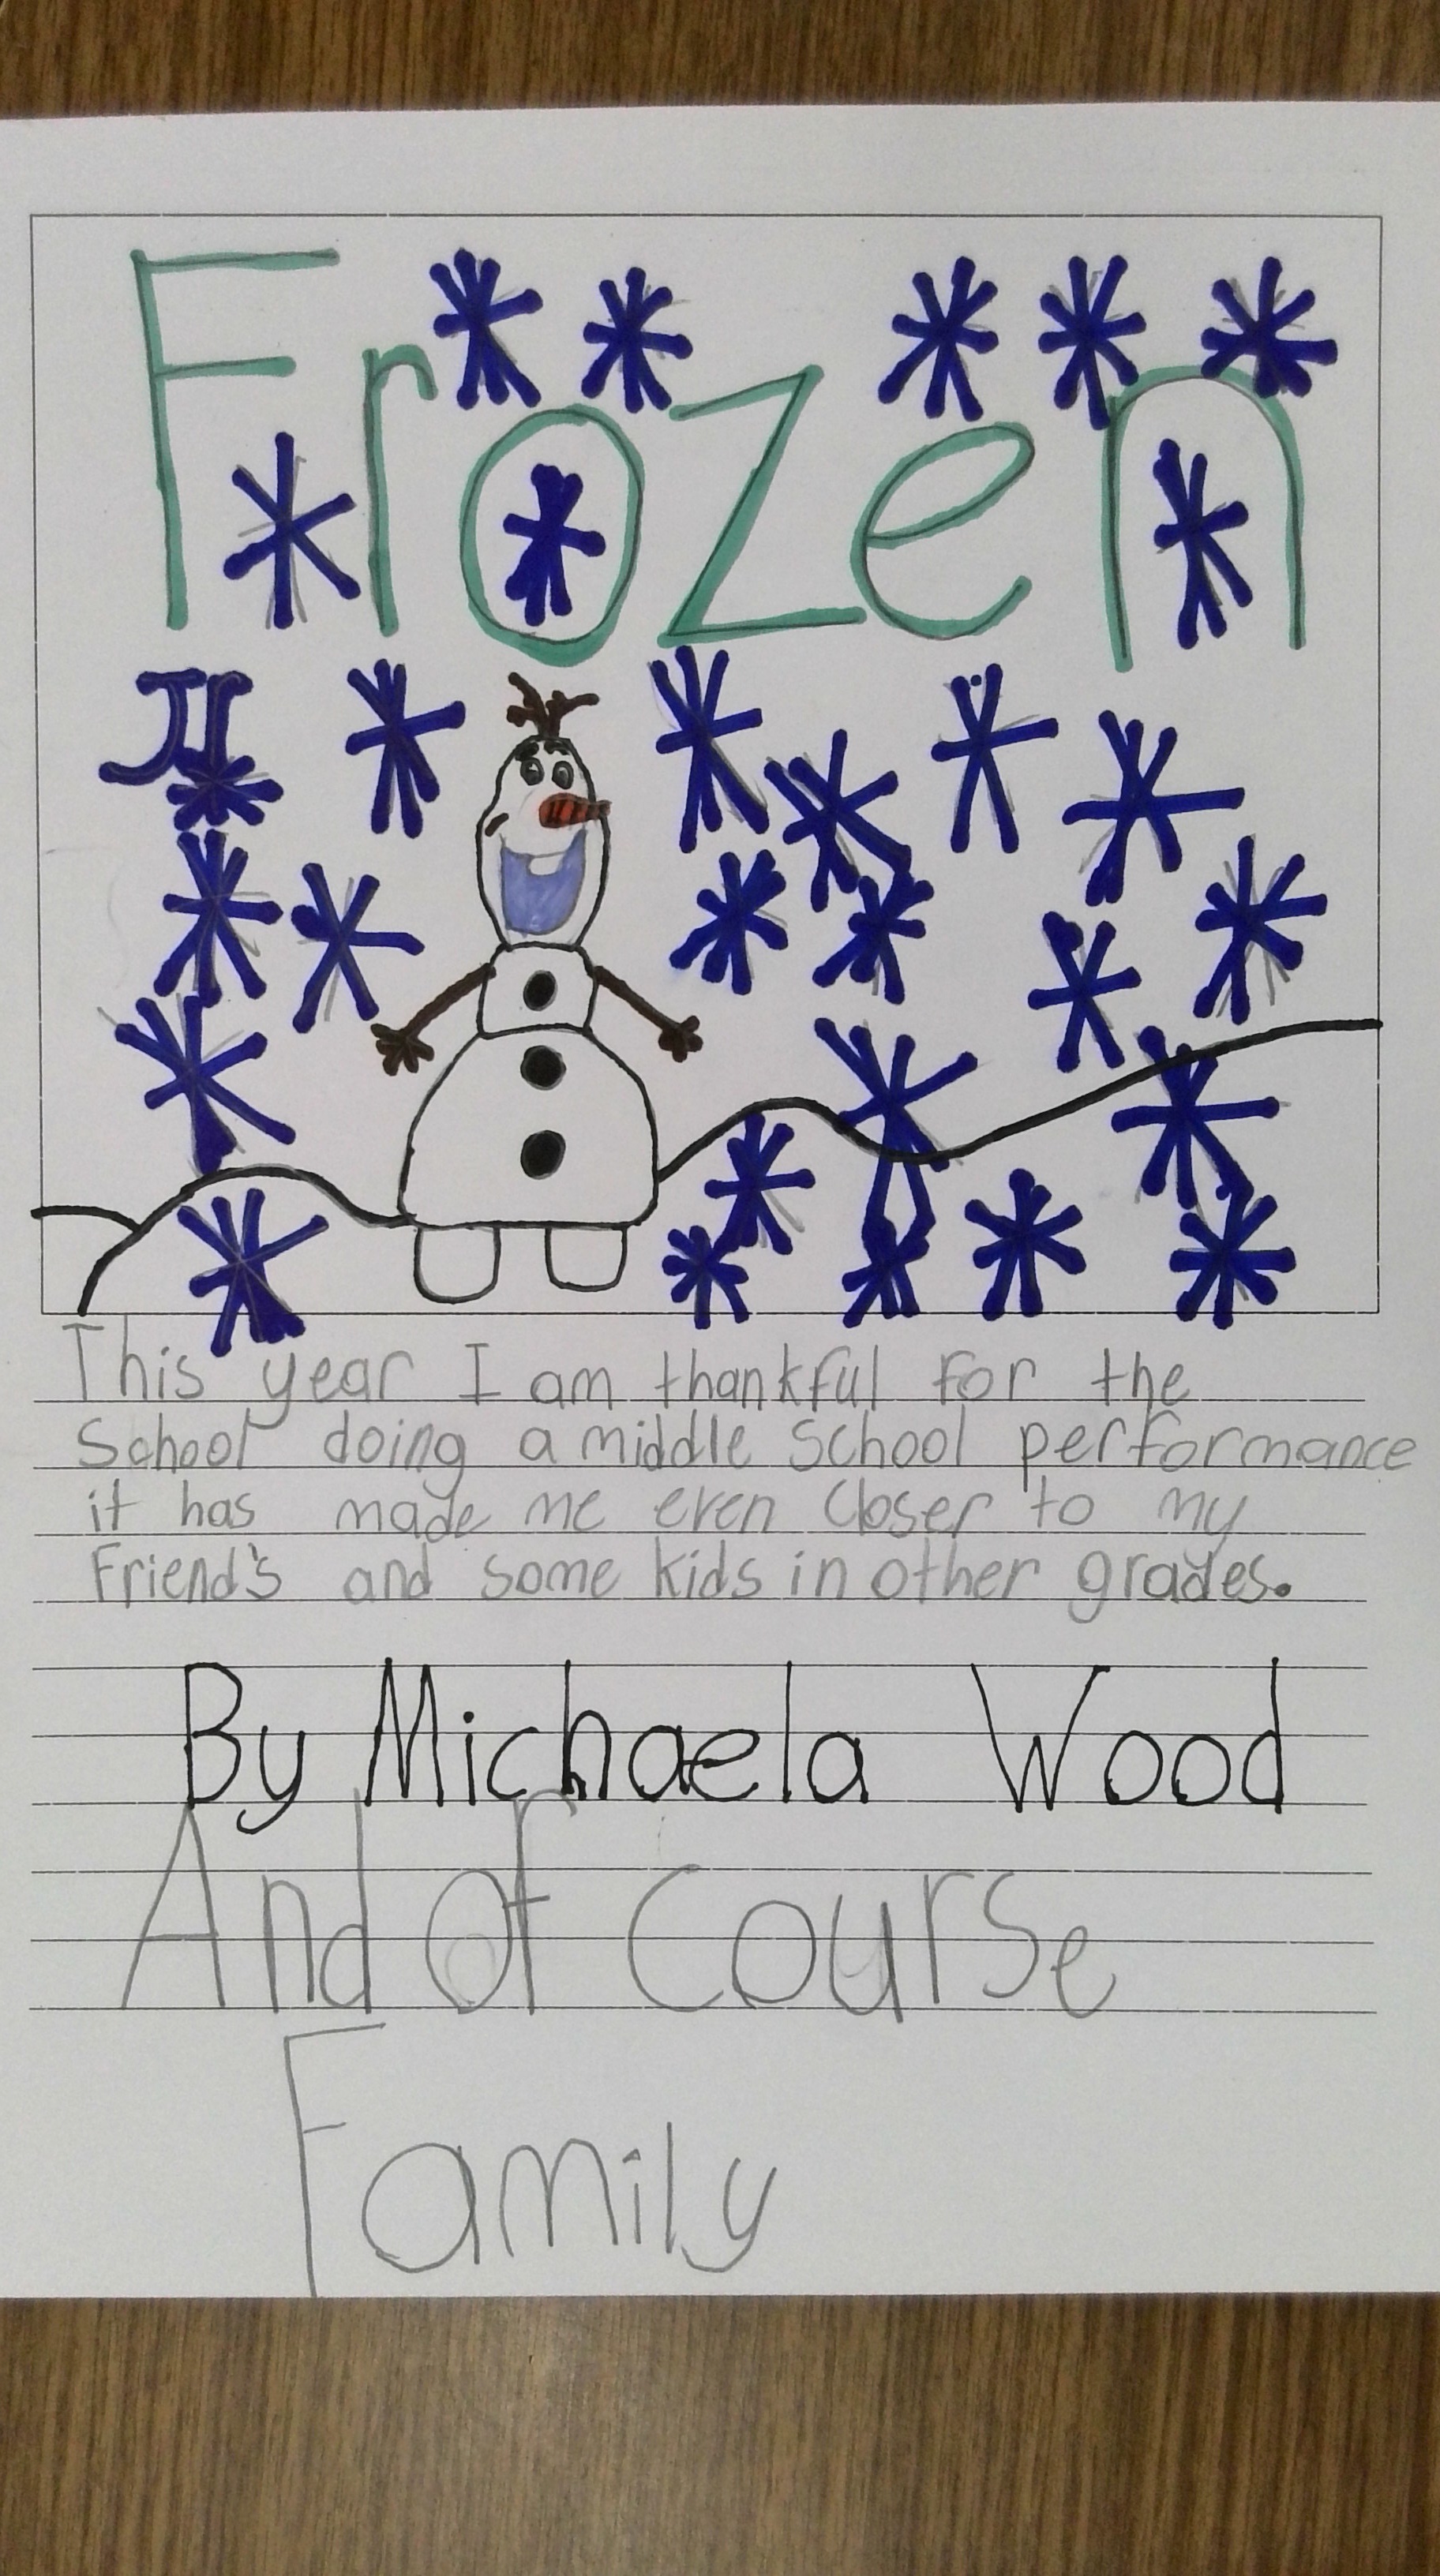 Frozen
Jr
This year I am thankful for the
School doing a middle school performance
it has made me even closer to my
Friend's and some kids in other grades.
By Michaela Wood
And of course
Family